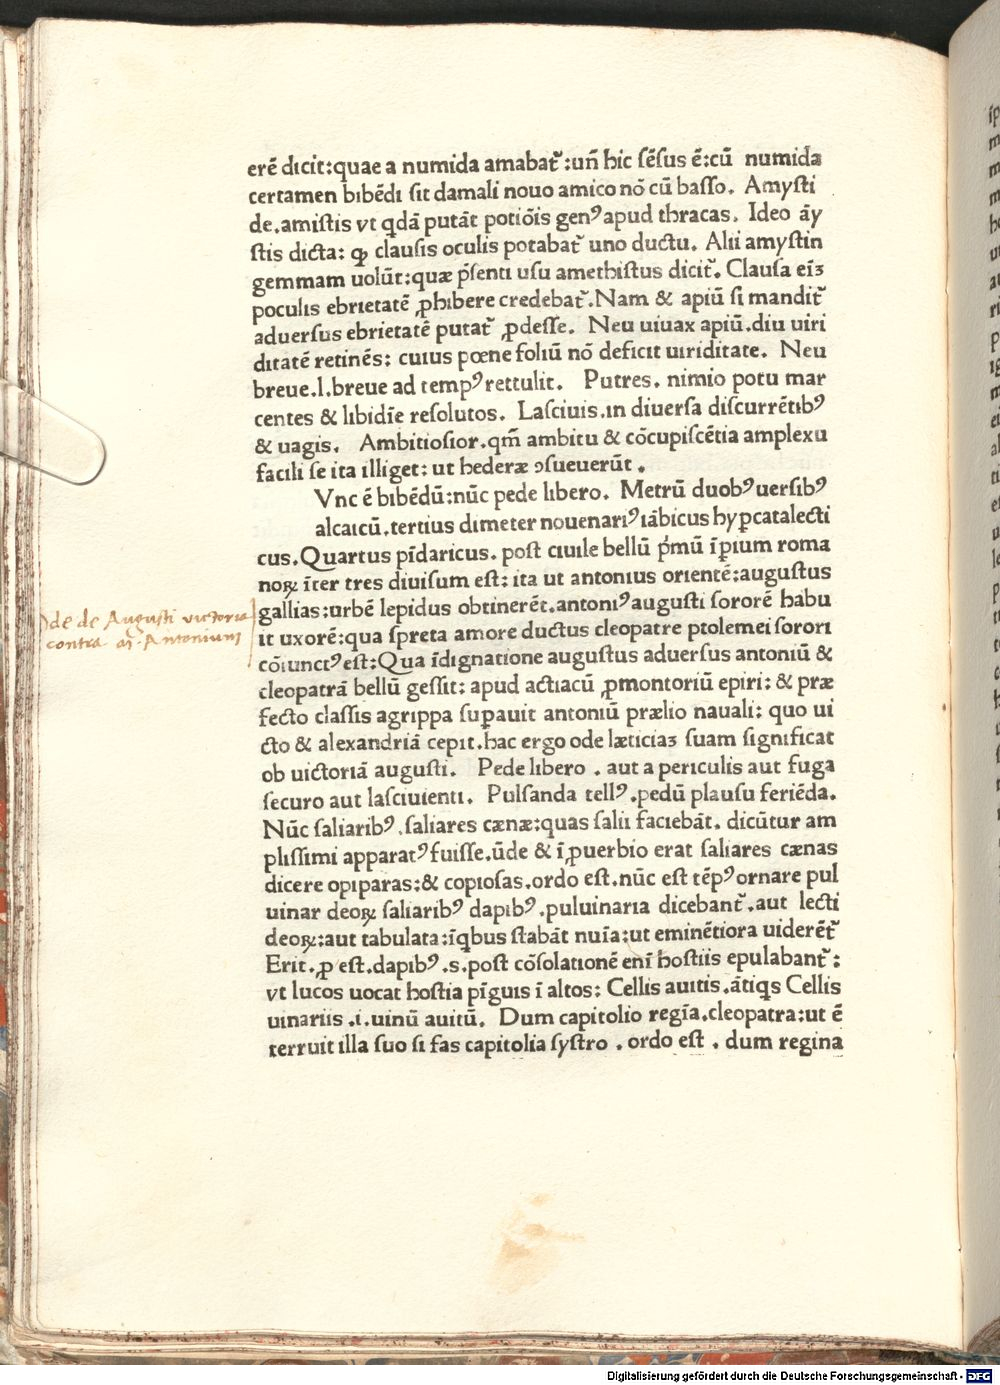 erē dicit:quae a numida amabat᷑:uñ hic sēsus ē:cū numida
certamen bibēdi sit damali nouo amico nō cū basso. Amysti
de.amistis vt qdā putāt potiōis genꝰ apud thracas. Ideo āy
stis dicta: ꝙ clausis oculis potabat᷑ uno ductu. Alii amystin
gemmam uolūt:quæ p̄senti usu amethistus dicit᷑. Clausa eīꝫ
poculis ebrietatē ꝓhibere credebat᷑.Nam & apiū si mandit᷑
aduersus ebrietatē putat᷑ ꝓdesse. Neu uiuax apiū.diu uiri
ditatē retinēs: cuius pœne foliū nō deficit uiriditate. Neu
breue.l.breue ad tempꝰ rettulit. Putres. nimio potu mar
centes & libidīe resolutos. Lasciuis.in diuersa discurrētibꝰ
& uagis. Ambitiosior.qm̄ ambitu & cōcupiscētia amplexu
facili se ita illiget: ut hederæ ꝯsueuerūt.
Vnc ē bibēdū:nūc pede libero. Metrū duobꝰ uersibꝰ
alcaicū.tertius dimeter nouenariꝰ iābicus hyꝑcatalecti
cus.Quartus pīdaricus. post ciuile bellū p̄mū īꝑium roma
noꝝ īter tres diuisum est: ita ut antonius orientē:augustus
gallias:urbē lepidus obtinerēt.antoniꝰ augusti sororē habu
it uxorē:qua spreta amore ductus cleopatre ptolemei sorori
cōiunctꝰ est:Qua īdignatione augustus aduersus antoniū &
cleopatrā bellū gessit: apud actiacū ꝓmontoriū epiri: & præ
fecto classis agrippa suꝑauit antoniū prælio nauali: quo ui
cto & alexandriā cepit.hac ergo ode læticiaꝫ suam significat
ob uictoriā augusti. Pede libero . aut a periculis aut fuga
securo aut lasciuienti. Pulsanda tellꝰ .pedū plausu feriēda.
Nūc saliaribꝰ .saliares cænæ:quas salii faciebāt. dicūtur am
plissimi apparatꝰ fuisse.ūde & ī ꝓuerbio erat saliares cænas
dicere opiparas:& copiosas.ordo est.nūc est tēpꝰ ornare pul
uinar deoꝝ saliaribꝰ dapibꝰ .puluinaria dicebant᷑.aut lecti
deoꝝ:aut tabulata:īqbus stabāt nuīa:ut eminētiora uiderēt᷑
Erit.ꝓ est.dapibꝰ .s.post cōsolationē enī hostiis epulabant᷑:
vt lucos uocat hostia pīguis ī altos: Cellis auitis.ātiqs Cellis
uinariis .i.uinū auitū. Dum capitolio regīa.cleopatra:ut ē
terruit illa suo si fas capitolia systro . ordo est . dum regina
Ode de Augusti victoria
contra Antonium
Digitalisierung gefördert durch die Deutsche Forschungsgemeinschaft - DFG